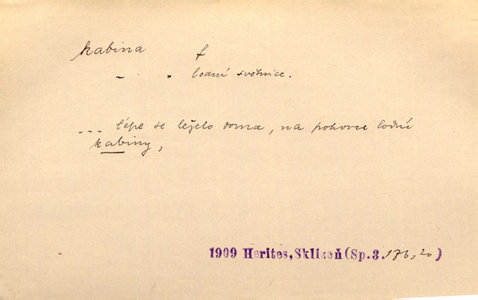 kabina f
lodní světnice.
... lépe se leželo doma, na pohovce lodní
kabiny,
1909 Herites, Sklizeň (Sp. 3. 176, 20)